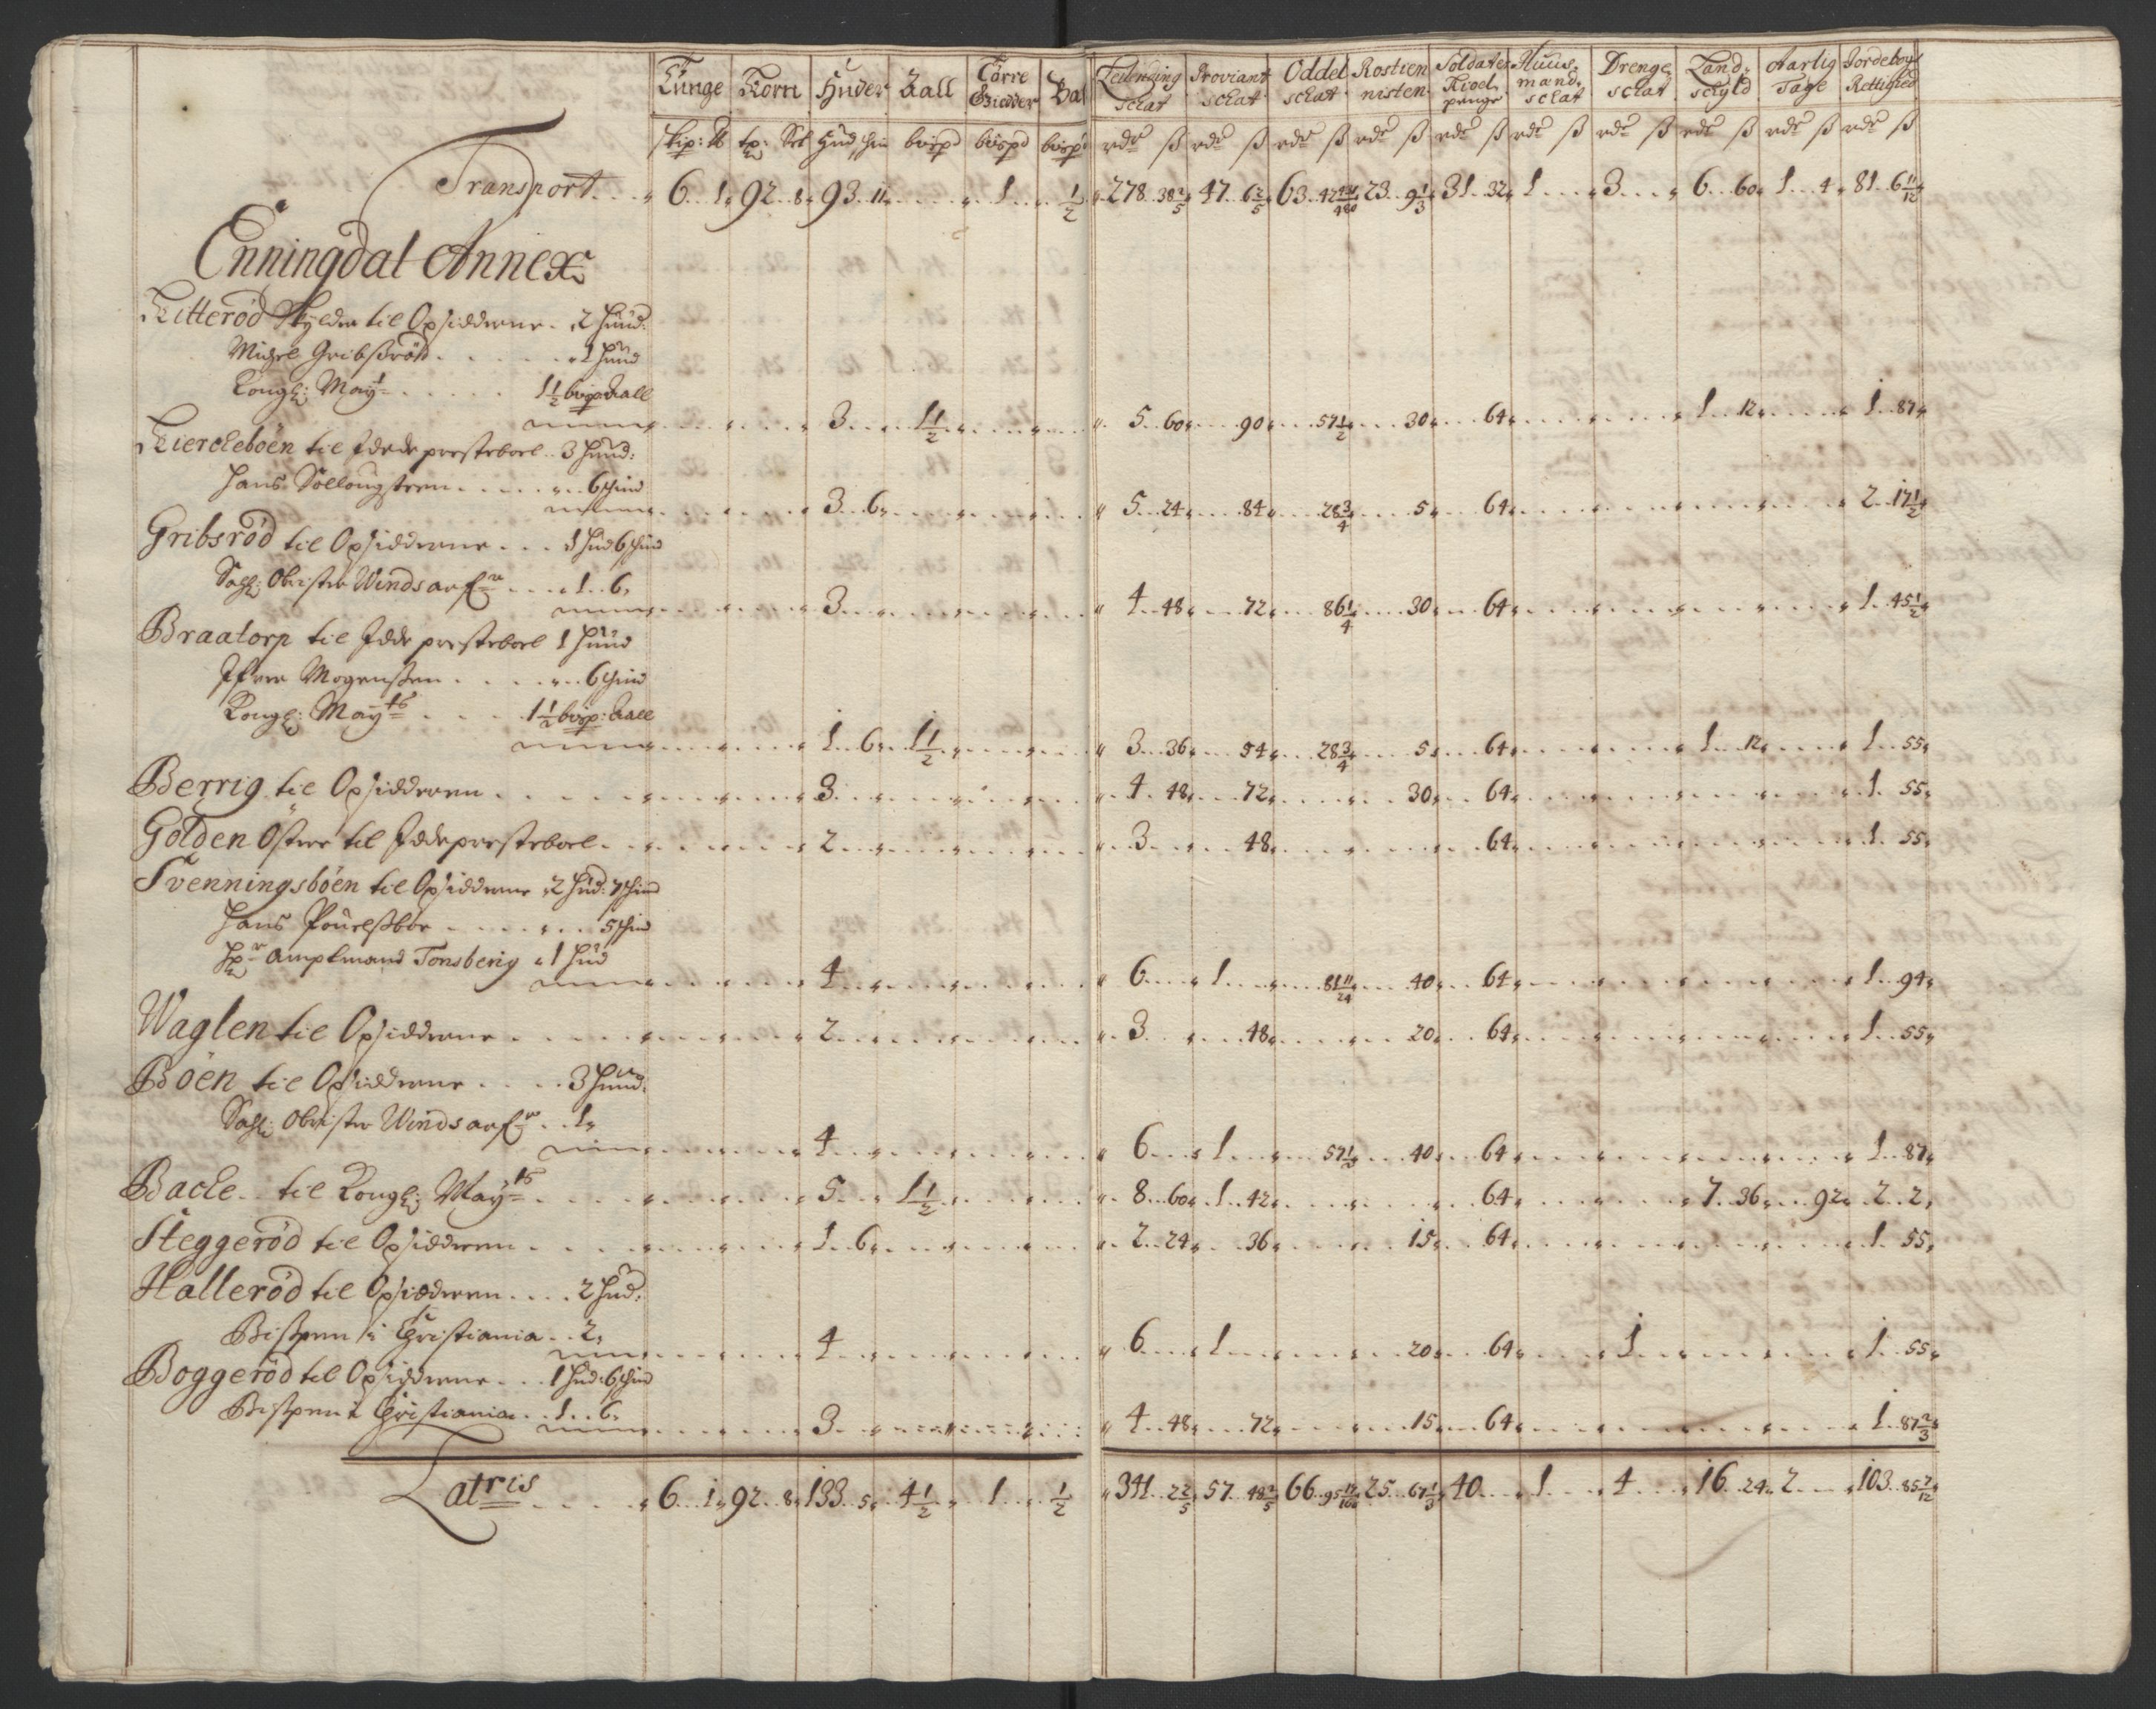 Tunge Korn Huder Aall Törre Giedder Bal Leilending schat Proviant schat Oddel schat Rostien nisten Soldater Kioel penge Huus mænd schat Drenge schat Land schyld Aarlig Tage Jordebogs Rettighed
Transport 6 1 92 8 93 11 1 1/2 278 38 2/5 47 6 2/5 63 23 9 1/3 31 32 1 3 6 60 1 4 81 6 11/12
Enningdal Annex
Kitteröd skylder til Opsidderne 2 hud:
Michel Gribsröd 1 hud
Kongl: May: 1 1/2 bispd Aall
3 1 1/2 5 60 90 57 1/2 30 64 1 12 1 87
Kiercheböen til Idde prestebol 3 hud:
Hans Sollougsteen 6 skind
3 6 5 24 84 28 3/4 5 64 2 17 1/2
Gribsröd til Opsidderne 1 hud 6 skind
Sahl: Obrister Winds arf: 1 6
3 4 48 72 86 1/4 30 64 1 45 1/2
Braatorp til Idde prestebol 1 hud
Ifver Mogensen 6 skind
Kongl: May:ts 1 1/2 bisp: Aall
1 6 1 1/2 3 36 54 28 3/4 5 64 1 12 1 55
Berrig til Opsidderen 3 4 48 72 30 64 1 55
Golden Östre til Idde prestebol 2 3 48 64 1 55
Svenningsböen til Opsidderne 2 hud: 7 skind
Hans Pouelsböe 5 skind
Hr: Amptmand Tonsberg 1 hud
4 6 1 81 11/24 40 64 1 94
Waglen til Opsidderne 2 3 48 20 64 1 55
Böen til Opsidderne 3 hud:
Sahl: Obrister Winds arf: 1
4 6 1 57 1/2 40 64 1 87
Bache til Kongl: May:ts 5 1 1/2 8 60 1 42 64 7 36 92 2 2
Steggeröd til Opsidderen 1 6 2 24 36 15 64 1 55
Halleröd til Opsidderen 2 hud:
Bispen i Christiania 2
4 6 1 20 64 1 1 55
Boggeröd til Opsidderne 1 hud: 6 skind
Bispen i Christiania 1 6
3 4 48 72 15 64 1 87 2/3
Latris 6 1 92 8 133 5 4 1/2 1 1/2 341 2 2/5 57 48 2/5 66 25 67 1/3 40 1 4 16 24 2 103 85 7/12